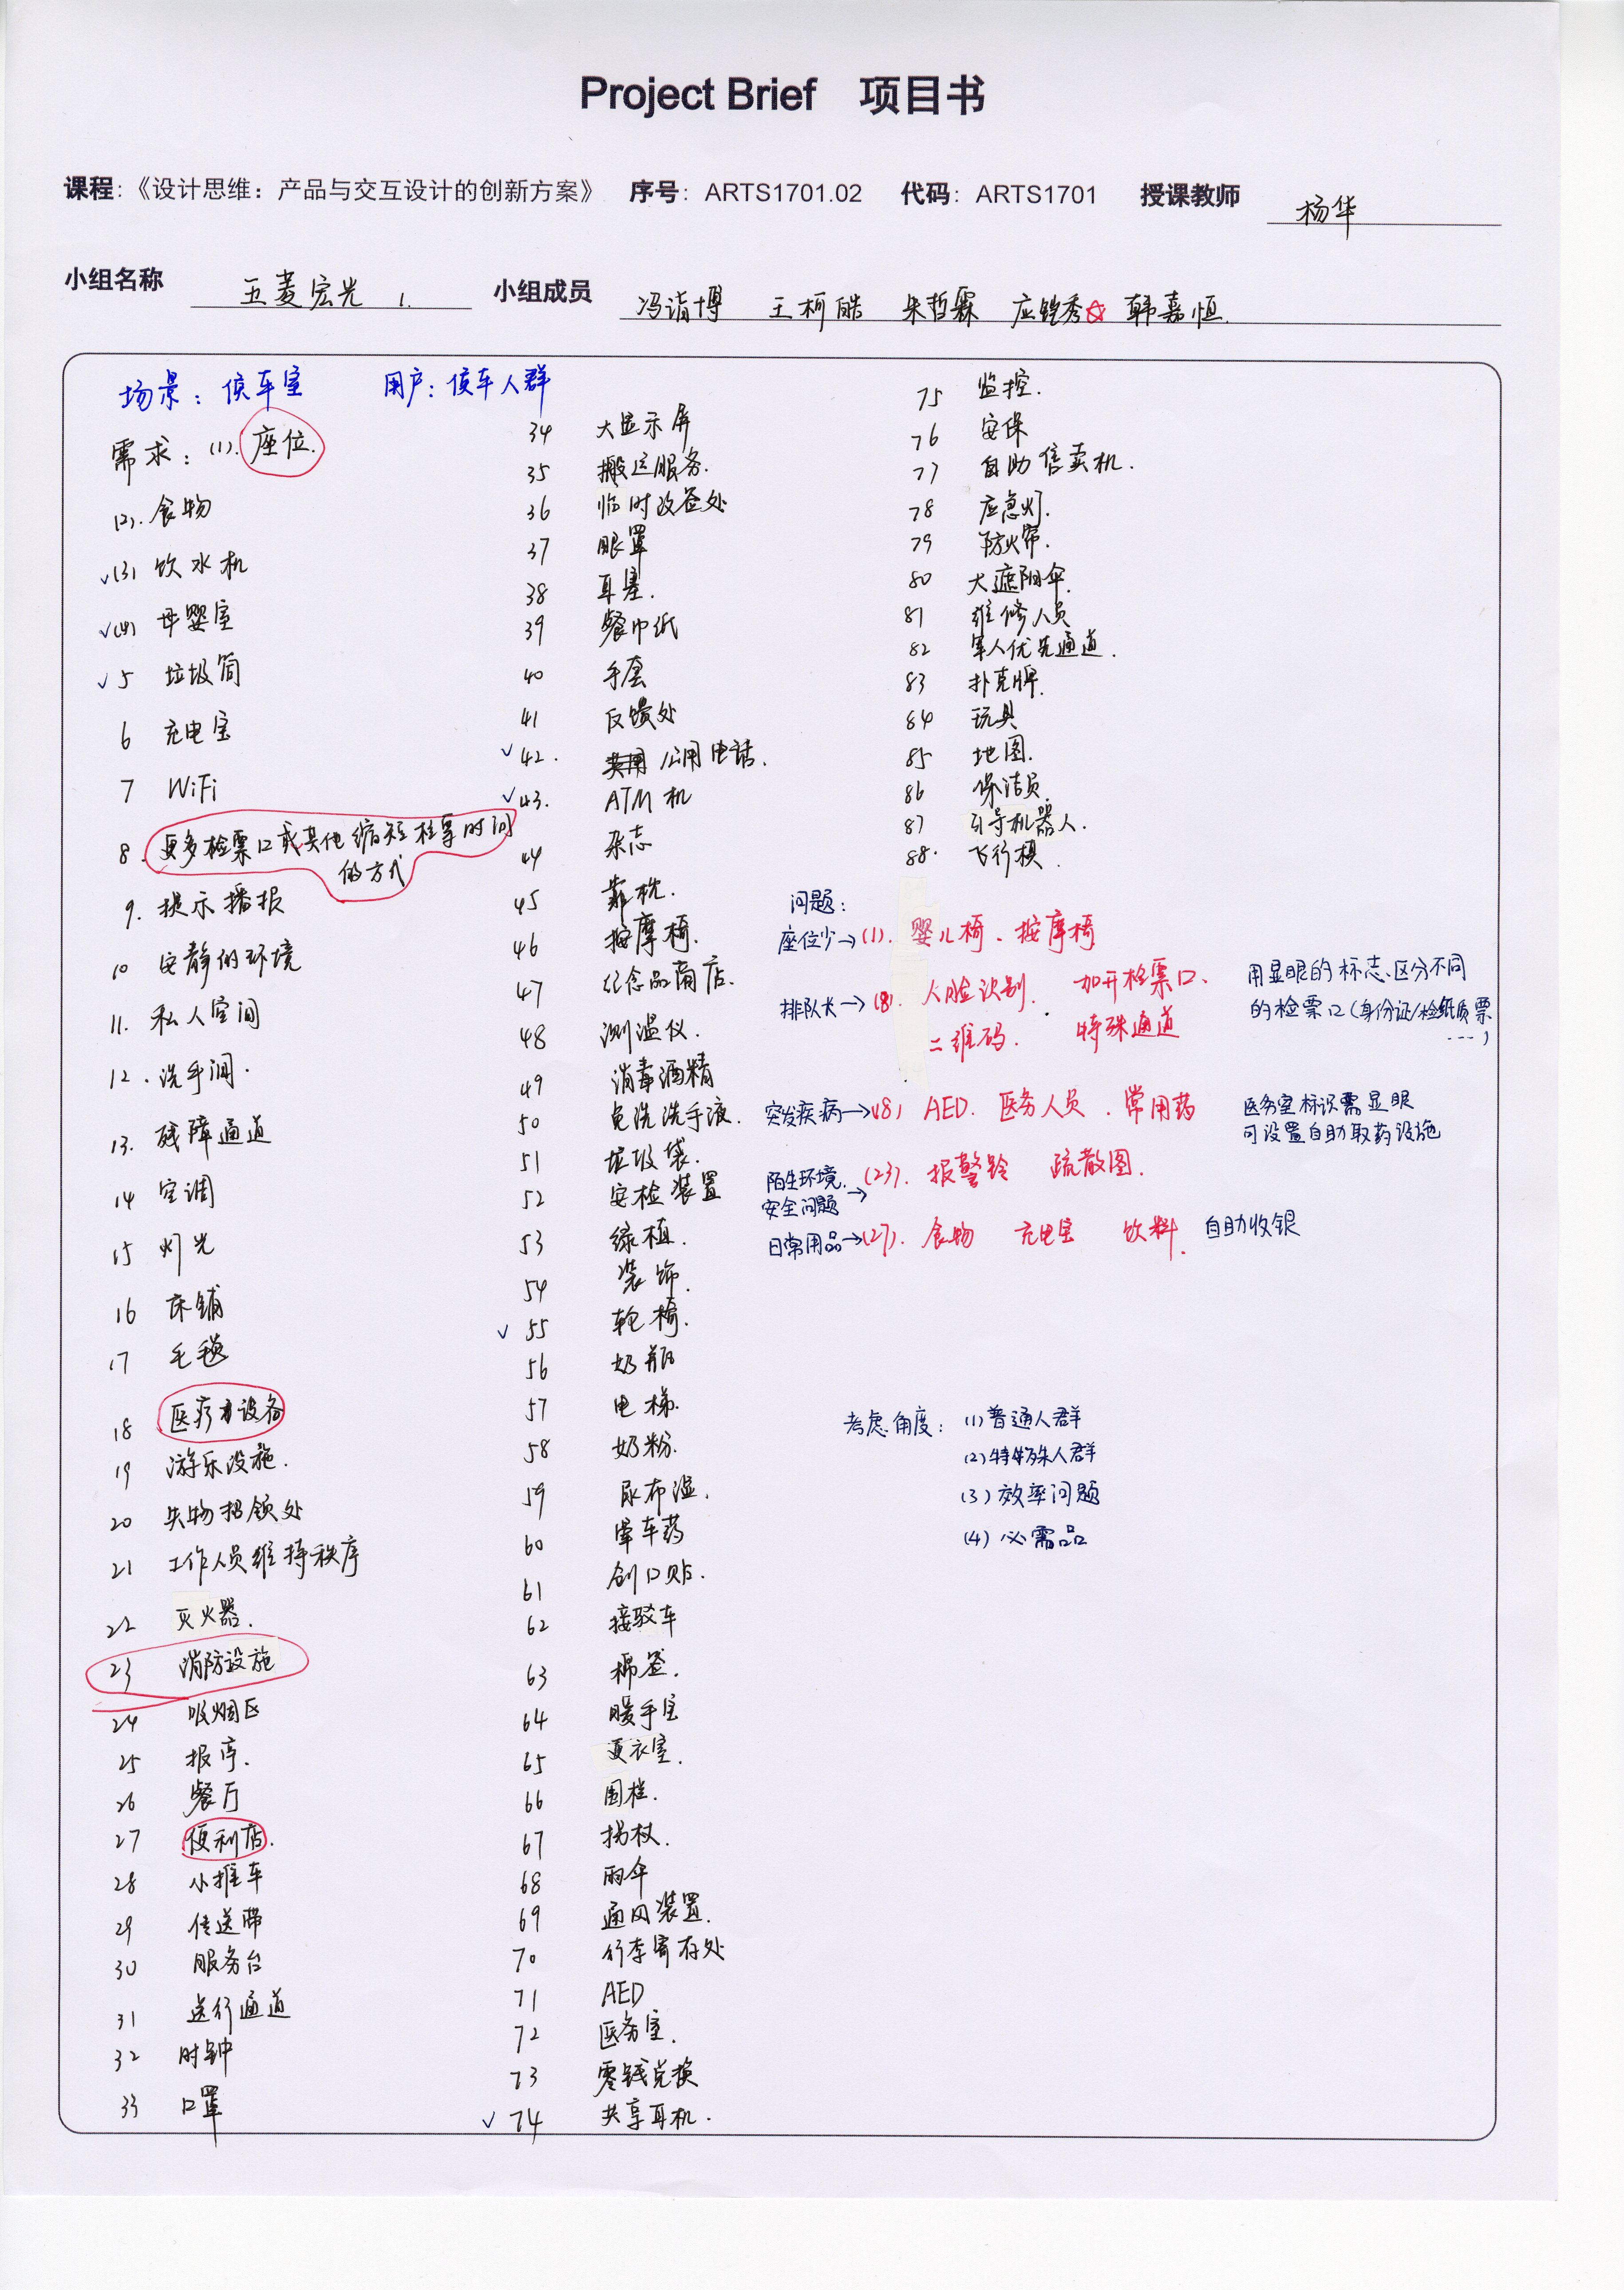 Project Brief 项目书
课程:《设计思维：产品与交互设计的创新方案》 序号: ARTS1701.02 代码: ARTS1701 授课教师 杨华
小组名称 五菱宏光 1. 小组成员 冯诣博 王柯皓 朱哲霖 应铠秀 韩嘉恒
场景：候车室 用户：候车人群
需求：(1). 座位.
(2). 食物
✓(3) 饮水机
✓(4) 母婴室
✓5 垃圾筒
6 充电宝
7 WiFi
8. 更多检票口或其他缩短检票时间
的方式
9. 提示播报
10 安静的环境
11. 私人空间
12. 洗手间.
13. 残障通道
14 空调
15 灯光
16 床铺
17 毛毯
18 医疗设备
19 游乐设施.
20 失物招领处
21 工作人员维持秩序
22 灭火器.
23 消防设施
24 吸烟区
25 报亭.
26 餐厅
27 便利店.
28 小推车
29 传送带
30 服务台
31 送行通道
32 时钟
33 口罩
34 大显示屏
35 搬运服务.
36 临时改签处
37 眼罩
38 耳塞.
39 餐巾纸
40 手套
41 反馈处
✓42. 公用电话.
✓43. ATM机
44 杂志
45 靠枕.
46 按摩椅.
47 纪念品商店.
48 测温仪.
49 消毒酒精
50 免洗洗手液.
51 垃圾袋.
52 安检装置
53 绿植.
54 装饰.
✓55 轮椅.
56 奶瓶
57 电梯.
58 奶粉.
59 尿布湿.
60 晕车药
61 创口贴.
62 接驳车
63 棉签.
64 暖手宝
65 更衣室.
66 围栏.
67 拐杖.
68 雨伞
69 通风装置.
70 行李寄存处
71 AED
72 医务室.
73 零钱兑换
✓74 共享耳机.
75 监控.
76 安保
77 自助售卖机.
78 应急灯.
79 防火帘.
80 大遮阳伞.
81 维修人员
82 军人优先通道.
83 扑克牌.
84 玩具
85 地图.
86 保洁员.
87 引导机器人.
88. 飞行棋.
问题：
座位少→(1). 婴儿椅、按摩椅
排队长→(8). 人脸识别. 加开检票口、
二维码. 特殊通道
用显眼的标志区分不同
的检票口(身份证/检纸质票
...)
突发疾病→(18) AED. 医务人员. 常用药
医务室标识需显眼
可设置自助取药设施
陌生环境.
安全问题→(23). 报警铃 疏散图.
日常用品→(27). 食物 充电宝 饮料. 自助收银
考虑角度：(1)普通人群
(2)特殊人群
(3)效率问题
(4)必需品